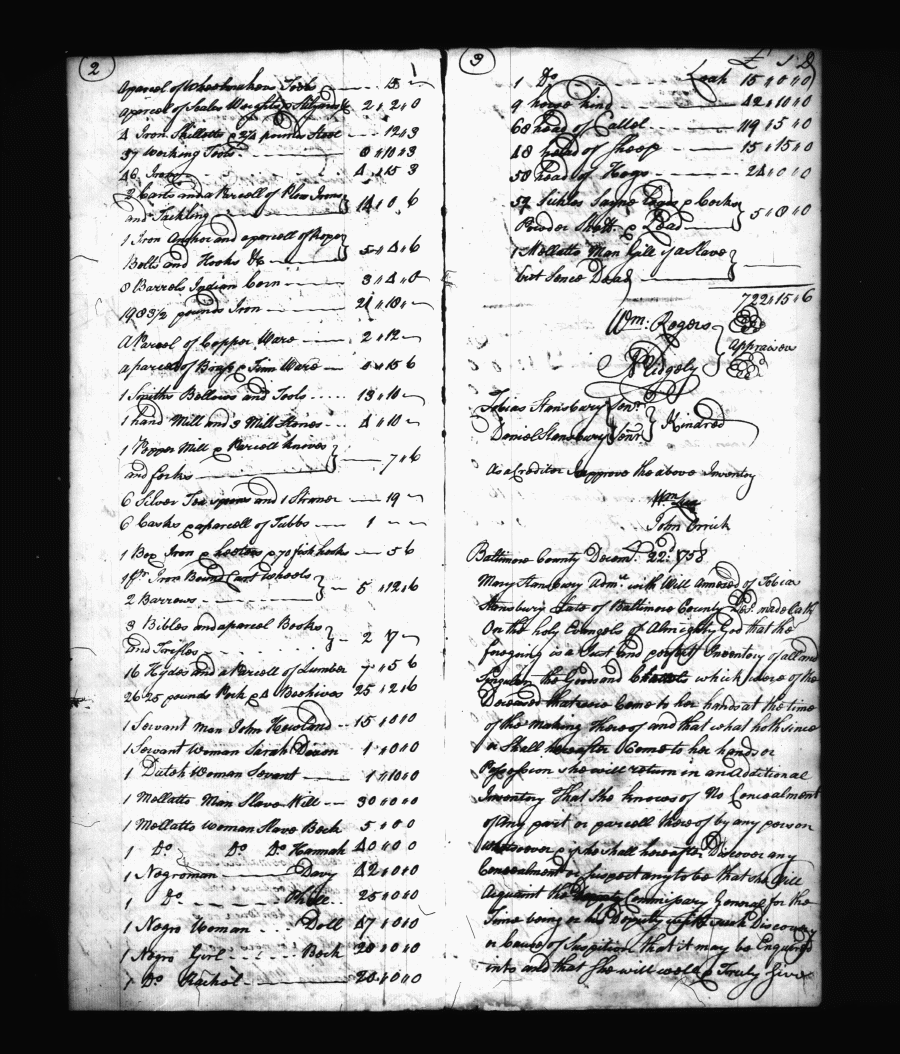 2
a parcel of Wheelwrights Tools 15
a parcel of Scales Weights & Stilyards 2 2 0
4 Iron Skilletts & 24 pounds Steel 12 3
37 Working Tools 8 10 3
46 Iron 4 15 3
2 Carts and a Parcell of Plow Irons
and Tackling 14 0 6
1 Iron Anchor and a parcell of Rope
Bolts and Hooks &c 5 4 6
8 Barrels Indian Corn 3 4 0
1983 1/2 pounds Iron 21 18
A Parcel of Copper Ware 2 12
a parcel of Brass & Tinn Ware 15 6
1 Smiths Bellows and Tools 13 10
1 hand Mill and 3 Mill Stones 4 10
1 Pepper Mill & Parcell knives
and forks 7 6
6 Silver Tea spoons and 1 Strainer 19
6 Casks & a parcell of Tubbs 1
1 Box Iron & heaters & 70 fish hooks 5 6
1 pr. Iron Bound Cart wheels
2 Barrows 5 12 6
3 Bibles and a parcel Books
and Trifles 2 17
16 Hydes and a Parcell of Lumber 7 5 6
2625 pounds Pork & 4 Beehives 25 12 6
1 Servant man John 15 0 0
1 Servant Woman Sarah Dixon 1 0 0
1 Dutch Woman Servant 1 10 0
1 Mollatto Man Slave Will 30 0 0
1 Mollatto Woman Slave Beck 5 0 0
1 Do. Do. Do. Hannah 40 0 0
1 Negroman Davy 42 0 0
1 Do. 25 0 0
1 Negro Woman Doll 47 0 0
1 Negro Girl Beck 20 0 0
1 Do. Rachel 20 0 0
3
£ S D
1 Do. Leah 15 0 0
9 horse kind 42 10 0
68 head of Cattel 119 15 0
48 head of Sheep 15 15 0
58 head of Hogs 24 0 0
57 Sickles Sayne Ropes & Corks
Powder Shott & Lead 5 8 0
1 Mollatto Man Gill is a Slave
but Sence Dead
722 15 6
Wm: Rogers
Appraisers
Ridgely
Tobias Stansbury Senr.
Kindred
Daniel Stansbury
As a Creditor I approve the above Inventory
John Orrick
Baltimore County Decemr. 22d. 1758
Mary Stansbury Admx. with Will Annexed of Tobias
Stansbury Late of Baltimore County Decd. made Oath
On the holy Evangels of Almighty God that the
foregoing is a Just and perfect Inventory of all and
Singular the Goods and Chattels which were of the
Deceased that are Come to her hands at the time
of the making thereof and that what hath since
or Shall hereafter Come to her hands or
Possession she will return in an Additional
Inventory That she knows of No Concealment
of any part or parcell thereof by any person
whatsoever & if she shall hereafter Discover any
Concealment or suspect any to be that she Will
Acquaint the Deputy Commissary General for the
Time being or his Deputy with such Discovery
or Cause of Suspition that it may be Enquired
into and that she will well & Truly Give